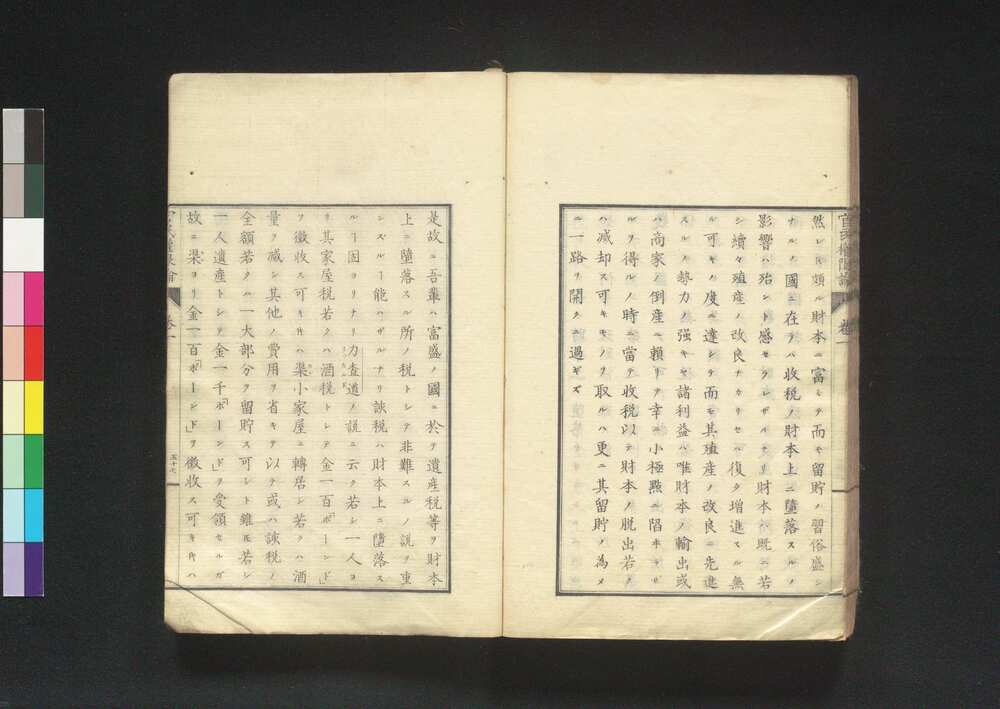 官民權限論 卷一
然レ𪜈頗ル財本ニ富ミテ而モ留貯ノ習俗盛ン
ナルノ國ニ在テハ收税ノ財本上ニ墮落スルノ
影響ハ殆ンド感セラレザルナリ財本ハ既ニ若
シ續々殖産ノ改良ナカリセハ復タ增進スル無
ル可キノ度ニ達シテ而モ其殖産ノ改良ニ先進
スルノ勢力ノ强キヤ諸利益ハ唯財本ノ輸出或
ハ高家ノ倒産ニ賴リテ幸ニ小極點ニ陷ヰキザ
ルヲ得ルノ時ニ當テ收税以テ財本ノ脱出若ク
ハ減却ス可キモノヲ取ルハ更ニ其留貯ノ為メ
ニ一路ヲ開クニ過ギズ
是故ニ吾輩ハ富盛ノ國ニ於テ遺産税等ヲ財本
上ニ墮落スル所ノ税トシテ非難スルノ説ヲ重
ンズルヿ能ハザルナリ該税ハ財本上ニ墮落ス
ルヿ固ヨリナリ力査道ノ説ニ云ク若シ一人ヨ
リ其家屋税若クハ酒税トシテ金一百「ポーンド」
ヲ徵收ス可キ𪜈ハ渠小家屋ニ轉居シ若クハ酒
量ヲ減シ其他ノ費用ヲ省キテ以テ或ハ該税ノ
全額若クハ一大部分ヲ留貯ス可シト雖𪜈若シ
一人遺産トシテ金一千「ポーンド」ヲ受領セルガ
故ニ渠ヨリ金一百「ポーンド」ヲ徵收ス可キ𪜈ハ
卷一
五十七